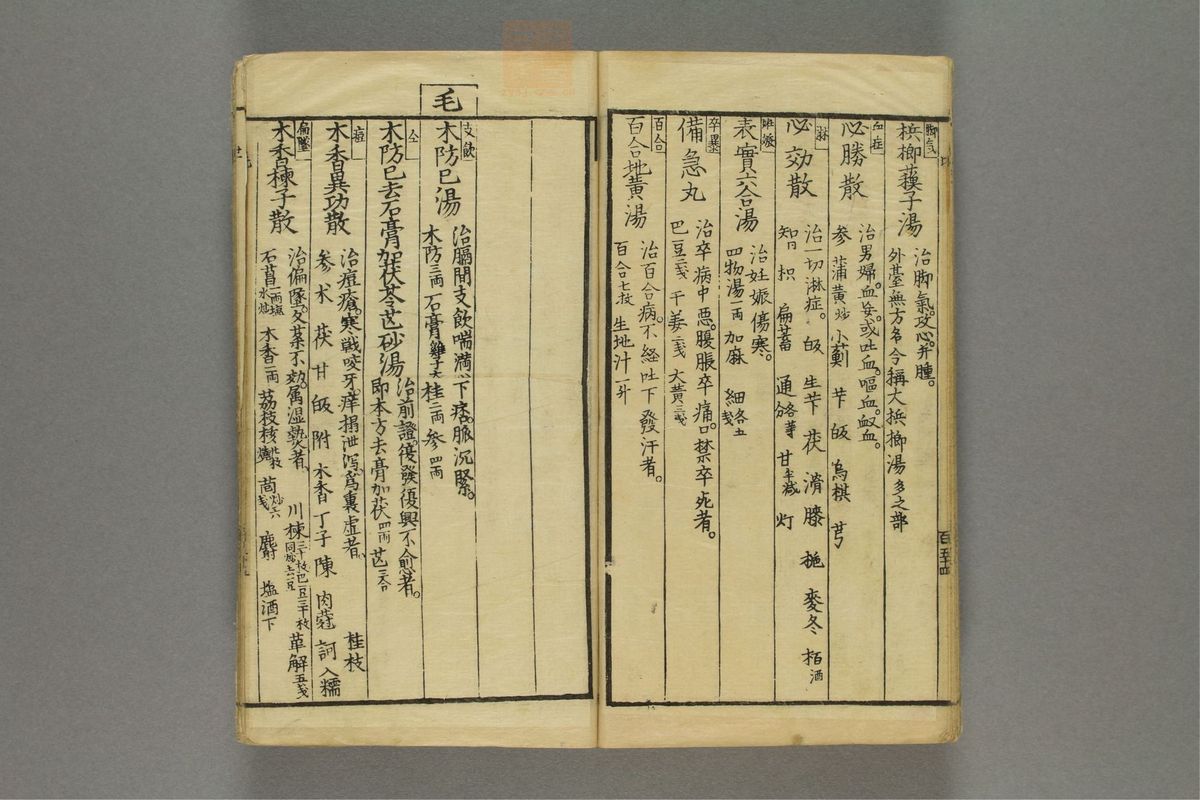 脚気
梹榔蘓子湯
治脚氣。攻心。并腫。
外臺無方名今稱大梹榔湯 多之部
血症
必勝散
治男婦。血妄。或吐血。嘔血。衂血。
参 蒲黄炒 小薊 芐 皈 烏梅 芎
淋
必効散
治一切淋症。 皈 生芐 茯 滑 膝 栀 麥冬 栢酒
知 枳 扁蓄 通各等分 甘半减 灯
班發
表實六合湯
治妊娠傷寒。
四物湯一両 加麻 細各五戔
卒暴
備急丸
治卒病中悪。腹脹卒痛。口禁卒死者。
巴豆二戔 干姜二戔 大黄二戔
百合
百合地黄湯
治百合病。不経吐下發汗者。
百合七枚 生地汁一升
百五十四
毛
支飲
木防已湯
治膈間支飲喘満心下痞。脈沉緊。
木防三両 石膏雞子大 桂二両 参四両
仝
木防已去石膏加茯苓芒砂湯
治前證。復發復興不愈者。
即本方去膏加茯四両 芒三合
痘
木香異功散
治痘瘡。寒戦咬牙。痒搨泄瀉。爲裏虚者。 桂枝
参 朮 茯 甘 皈 附 木香 丁子 陳 肉蔻 訶 入糯
扁墜
木香楝子散
治偏墜。久薬不効。属湿熱者。 川楝三十枚巴豆二十枚同炒去豆 萆解五戔
石菖一両塩水炒 木香一両 荔枝核 茴炒六戔 麝 塩酒下